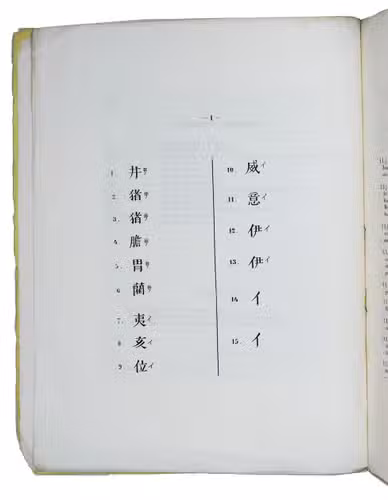 — 1 —
1. 井ヰ
2. 猪ヰ
3. 猪ヰ
4. 膽ヰ
5. 胃ヰ
6. 藺ヰ
7. 夷イ
8. 亥イ
9. 位イ
10. 威イ
11. 意イ
12. 伊イ
13. 伊イ
14. イ
15. イ